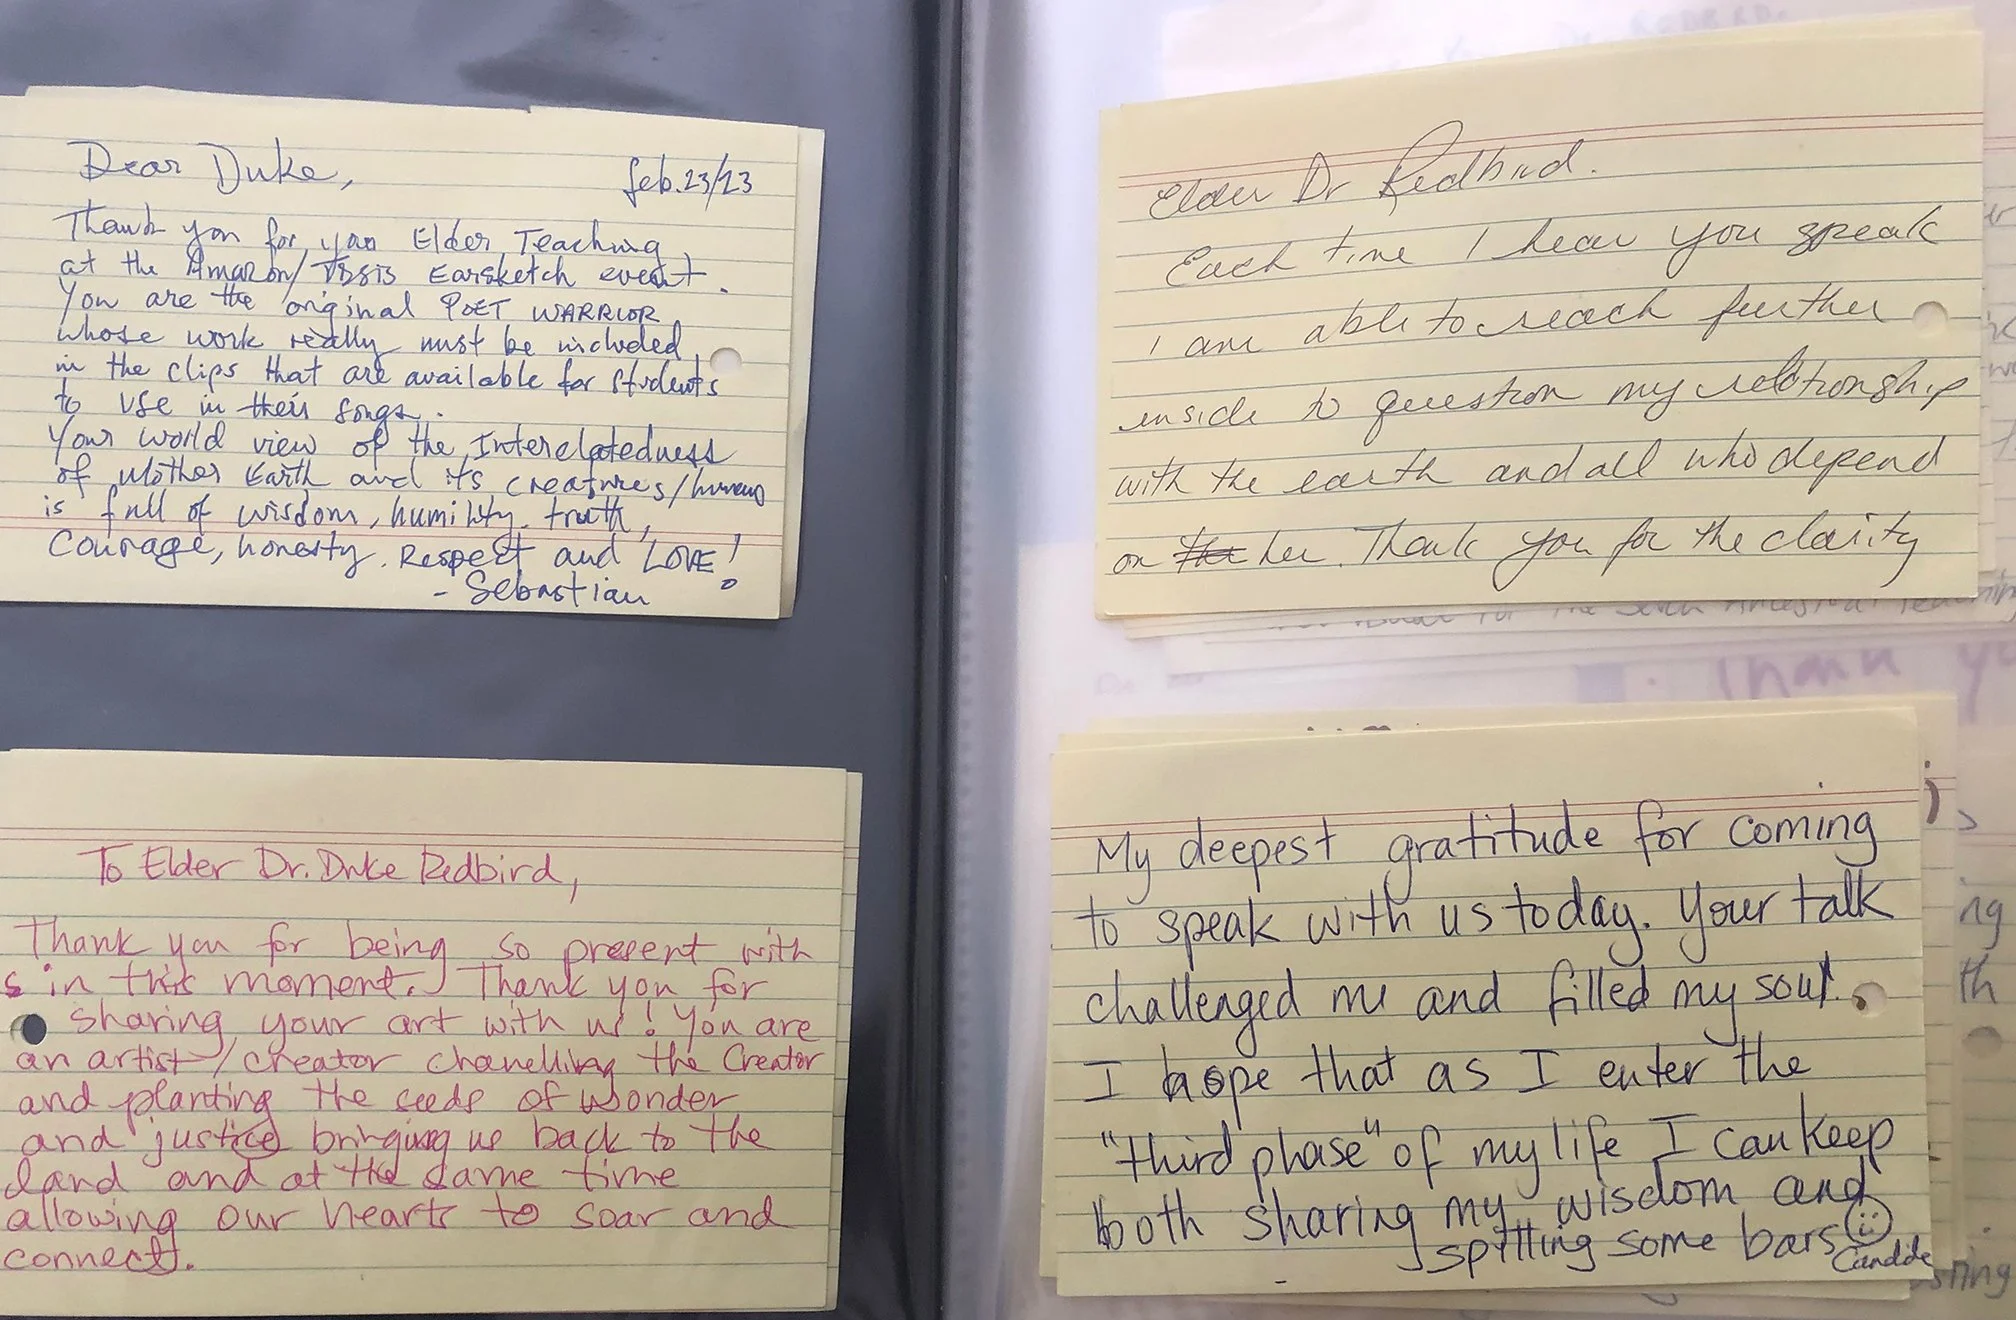 Dear Duke,
feb.23/23
Thank you for your Elder Teaching
at the Amazon/TDSB's Earsketch event.
You are the original POET WARRIOR
whose work really must be included
in the clips that are available for students
to use in their songs.
Your world view of the Interelatedness
of Mother Earth and its creatures/humans
is full of wisdom, humility, truth,
Courage, honesty, Respect and LOVE!
- Sebastian
To Elder Dr. Duke Redbird,
Thank you for being so present with
s in this moment. Thank you for
sharing your art with us! You are
an artist/creator chanelling the Creator
and planting the seeds of wonder
and justice bringing us back to the
land and at the same time
allowing our hearts to soar and
connect.
Elder Dr Redbird.
Each time I hear you speak
I am able to reach further
inside to question my relationship
with the earth and all who depend
on her. Thank you for the clarity
for the Seven Ancestral Teaching
Thank yo
My deepest gratitude for coming
to speak with us today. Your talk
challenged me and filled my soul.
I hope that as I enter the
"third phase" of my life I can keep
both sharing my wisdom and
spitting some bars